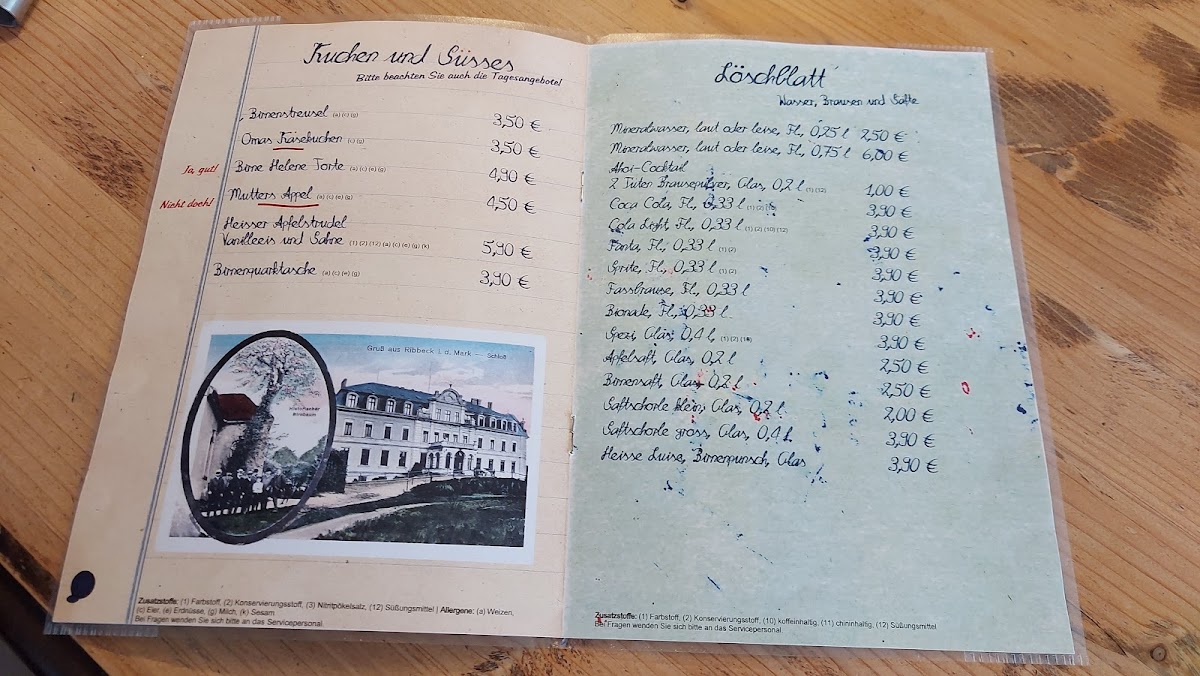 Kuchen und Süsses
Bitte beachten Sie auch die Tagesangebote!
Birnenstreusel (a) (c) (g) 3,50 €
Omas Käsekuchen (c) (g) 3,50 €
Ja, gut! Birne Helene Torte (a) (c) (e) (g) 4,90 €
Nicht doch! Mutters Appel (a) (c) (e) (g) 4,50 €
Heisser Apfelstrudel
Vanilleeis und Sahne (1) (2) (12) (a) (c) (e) (g) (k) 5,90 €
Birnenquarktasche (a) (c) (e) (g) 3,90 €
Gruß aus Ribbeck i. d. Mark — Schloß
Historischer
Birnbaum
Zusatzstoffe: (1) Farbstoff, (2) Konservierungsstoff, (3) Nitritpökelsalz, (12) Süßungsmittel | Allergene: (a) Weizen,
(c) Eier, (e) Erdnüsse, (g) Milch, (k) Sesam
Bei Fragen wenden Sie sich bitte an das Servicepersonal.
Löschblatt
Wasser, Brausen und Säfte
Mineralwasser, laut oder leise, Fl., 0,25 l 2,50 €
Mineralwasser, laut oder leise, Fl., 0,75 l 6,00 €
Ahoi-Cocktail
2 Tüten Brausepulver, Glas, 0,2 l (1) (12) 1,00 €
Coca Cola, Fl., 0,33 l (1) (2) (10) 3,90 €
Cola Light, Fl., 0,33 l (1) (2) (10) (12) 3,90 €
Fanta, Fl., 0,33 l (1) (2) 3,90 €
Sprite, Fl., 0,33 l (1) (2) 3,90 €
Fassbrause, Fl., 0,33 l 3,90 €
Bionade, Fl., 0,33 l 3,90 €
Spezi, Glas, 0,4 l, (1) (2) (10) 3,90 €
Apfelsaft, Glas, 0,2 l 2,50 €
Birnensaft, Glas, 0,2 l 2,50 €
Saftschorle klein, Glas, 0,2 l 2,00 €
Saftschorle gross, Glas, 0,4 l 3,90 €
Heisse Luise, Birnenpunsch, Glas 3,90 €
Zusatzstoffe: (1) Farbstoff, (2) Konservierungsstoff, (10) koffeinhaltig, (11) chininhaltig, (12) Süßungsmittel
Bei Fragen wenden Sie sich bitte an das Servicepersonal.